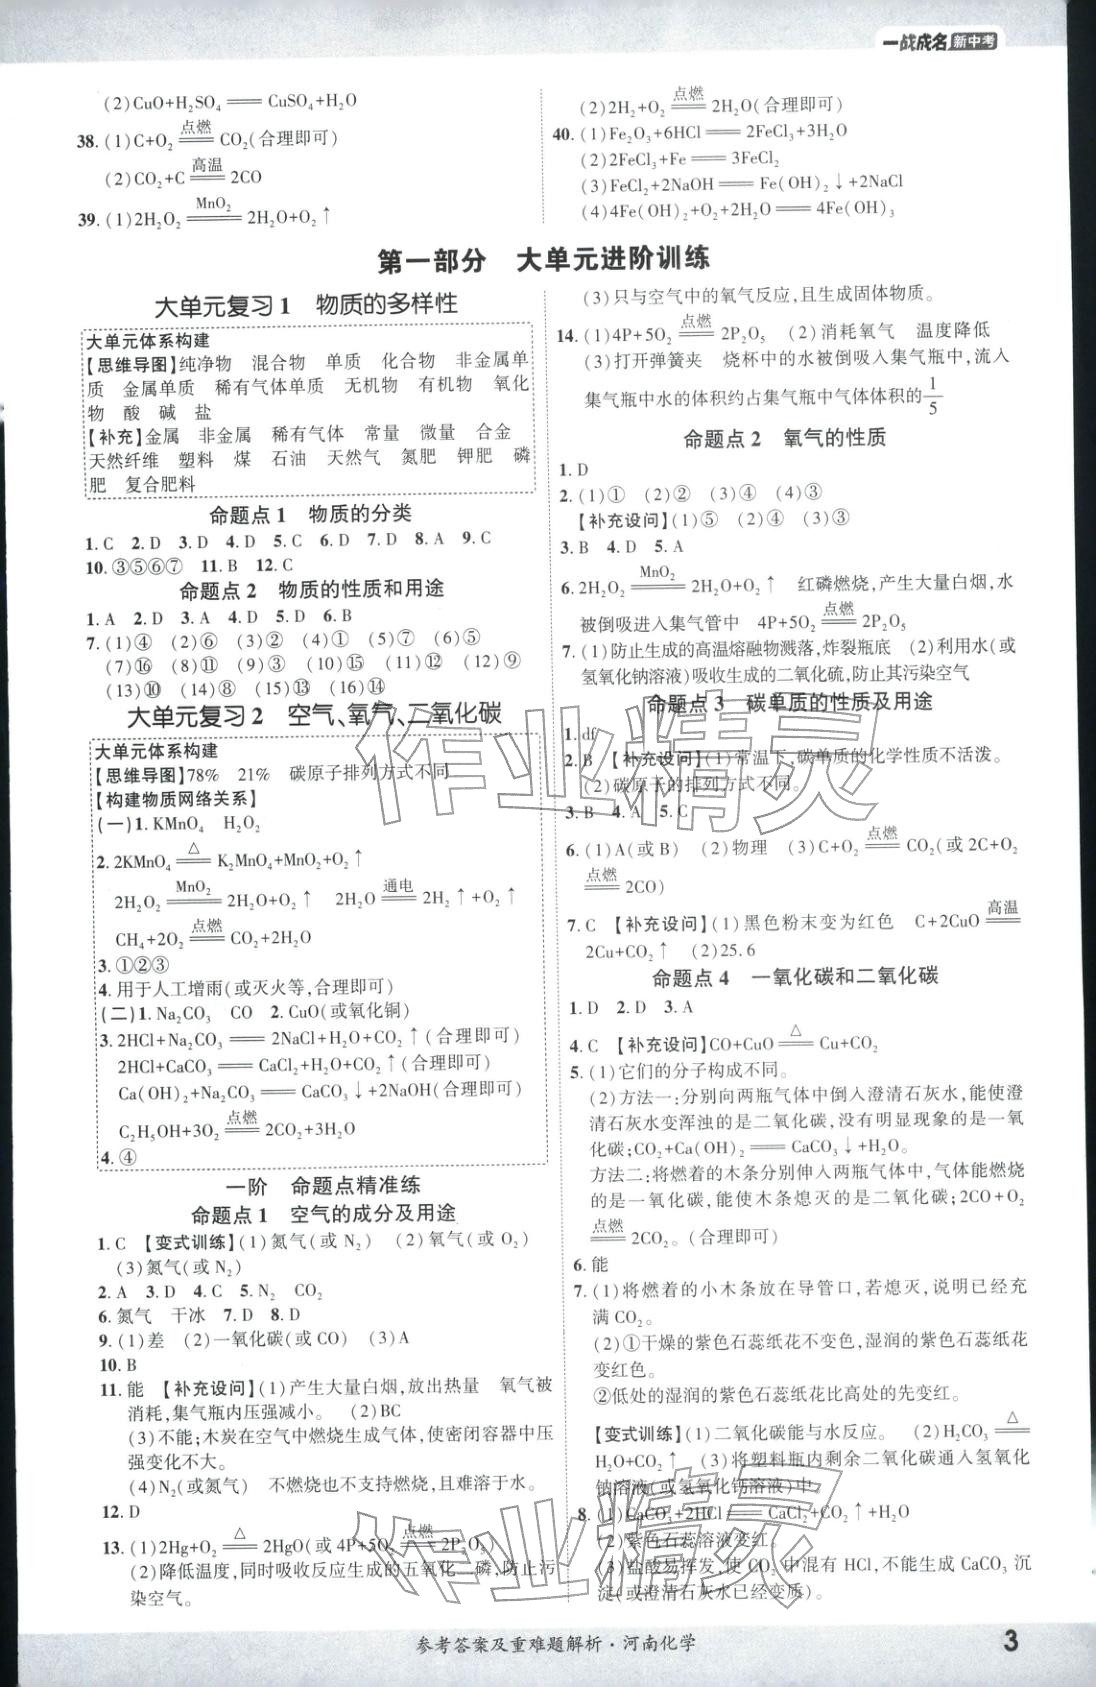 一战成名 新中考
(2)CuO+H₂SO₄══CuSO₄+H₂O
38. (1)C+O₂ 点燃══ CO₂(合理即可)
(2)CO₂+C 高温══ 2CO
39. (1)2H₂O₂ MnO₂══ 2H₂O+O₂↑
(2)2H₂+O₂ 点燃══ 2H₂O(合理即可)
40. (1)Fe₂O₃+6HCl══2FeCl₃+3H₂O
(2)2FeCl₃+Fe══3FeCl₂
(3)FeCl₂+2NaOH══Fe(OH)₂↓+2NaCl
(4)4Fe(OH)₂+O₂+2H₂O══4Fe(OH)₃
第一部分 大单元进阶训练
大单元复习1 物质的多样性
大单元体系构建
【思维导图】纯净物 混合物 单质 化合物 非金属单
质 金属单质 稀有气体单质 无机物 有机物 氧化
物 酸 碱 盐
【补充】金属 非金属 稀有气体 常量 微量 合金
天然纤维 塑料 煤 石油 天然气 氮肥 钾肥 磷
肥 复合肥料
命题点1 物质的分类
1. C 2. D 3. D 4. D 5. C 6. D 7. D 8. A 9. C
10. ③⑤⑥⑦ 11. B 12. C
命题点2 物质的性质和用途
1. A 2. D 3. A 4. D 5. D 6. B
7. (1)④ (2)⑥ (3)② (4)① (5)⑦ (6)⑤
(7)⑯ (8)⑪ (9)③ (10)⑮ (11)⑫ (12)⑨
(13)⑩ (14)⑧ (15)⑬ (16)⑭
大单元复习2 空气、氧气、二氧化碳
大单元体系构建
【思维导图】78% 21% 碳原子排列方式不同
【构建物质网络关系】
(一)1. KMnO₄ H₂O₂
2. 2KMnO₄ △══ K₂MnO₄+MnO₂+O₂↑
2H₂O₂ MnO₂══ 2H₂O+O₂↑ 2H₂O 通电══ 2H₂↑+O₂↑
CH₄+2O₂ 点燃══ CO₂+2H₂O
3. ①②③
4. 用于人工增雨(或灭火等,合理即可)
(二)1. Na₂CO₃ CO 2. CuO(或氧化铜)
3. 2HCl+Na₂CO₃══2NaCl+H₂O+CO₂↑(合理即可)
2HCl+CaCO₃══CaCl₂+H₂O+CO₂↑(合理即可)
Ca(OH)₂+Na₂CO₃══CaCO₃↓+2NaOH(合理即可)
C₂H₅OH+3O₂ 点燃══ 2CO₂+3H₂O
4. ④
一阶 命题点精准练
命题点1 空气的成分及用途
1. C 【变式训练】(1)氮气(或N₂) (2)氧气(或O₂)
(3)氮气(或N₂)
2. A 3. D 4. C 5. N₂ CO₂
6. 氮气 干冰 7. D 8. D
9. (1)差 (2)一氧化碳(或CO) (3)A
10. B
11. 能 【补充设问】(1)产生大量白烟,放出热量 氧气被
消耗,集气瓶内压强减小。 (2)BC
(3)不能;木炭在空气中燃烧生成气体,使密闭容器中压
强变化不大。
(4)N₂(或氮气) 不燃烧也不支持燃烧,且难溶于水。
12. D
13. (1)2Hg+O₂ △══ 2HgO(或4P+5O₂ 点燃══ 2P₂O₅)
(2)降低温度,同时吸收反应生成的五氧化二磷,防止污
染空气。
(3)只与空气中的氧气反应,且生成固体物质。
14. (1)4P+5O₂ 点燃══ 2P₂O₅ (2)消耗氧气 温度降低
(3)打开弹簧夹 烧杯中的水被倒吸入集气瓶中,流入
集气瓶中水的体积约占集气瓶中气体体积的1/5
命题点2 氧气的性质
1. D
2. (1)① (2)② (3)④ (4)③
【补充设问】(1)⑤ (2)④ (3)③
3. B 4. D 5. A
6. 2H₂O₂ MnO₂══ 2H₂O+O₂↑ 红磷燃烧,产生大量白烟,水
被倒吸进入集气管中 4P+5O₂ 点燃══ 2P₂O₅
7. (1)防止生成的高温熔融物溅落,炸裂瓶底 (2)利用水(或
氢氧化钠溶液)吸收生成的二氧化硫,防止其污染空气
命题点3 碳单质的性质及用途
1. df
2. B 【补充设问】(1)常温下,碳单质的化学性质不活泼。
(2)碳原子的排列方式不同。
3. B 4. A 5. C
6. (1)A(或B) (2)物理 (3)C+O₂ 点燃══ CO₂(或2C+O₂
点燃══ 2CO)
7. C 【补充设问】(1)黑色粉末变为红色 C+2CuO 高温══
2Cu+CO₂↑ (2)25.6
命题点4 一氧化碳和二氧化碳
1. D 2. D 3. A
4. C 【补充设问】CO+CuO △══ Cu+CO₂
5. (1)它们的分子构成不同。
(2)方法一:分别向两瓶气体中倒入澄清石灰水,能使澄
清石灰水变浑浊的是二氧化碳,没有明显现象的是一氧
化碳;CO₂+Ca(OH)₂══CaCO₃↓+H₂O。
方法二:将燃着的木条分别伸入两瓶气体中,气体能燃烧
的是一氧化碳,能使木条熄灭的是二氧化碳;2CO+O₂
点燃══ 2CO₂。(合理即可)
6. 能
7. (1)将燃着的小木条放在导管口,若熄灭,说明已经充
满CO₂。
(2)①干燥的紫色石蕊纸花不变色,湿润的紫色石蕊纸花
变红色。
②低处的湿润的紫色石蕊纸花比高处的先变红。
【变式训练】(1)二氧化碳能与水反应。 (2)H₂CO₃ △══
H₂O+CO₂↑ (3)将塑料瓶内剩余二氧化碳通入氢氧化
钠溶液(或氢氧化钙溶液)中。
8. (1)CaCO₃+2HCl══CaCl₂+CO₂↑+H₂O
(2)紫色石蕊溶液变红。
(3)盐酸易挥发,使CO₂中混有HCl,不能生成CaCO₃沉
淀(或澄清石灰水已经变质)。
作业精灵
作业精灵
参考答案及重难题解析·河南化学
3